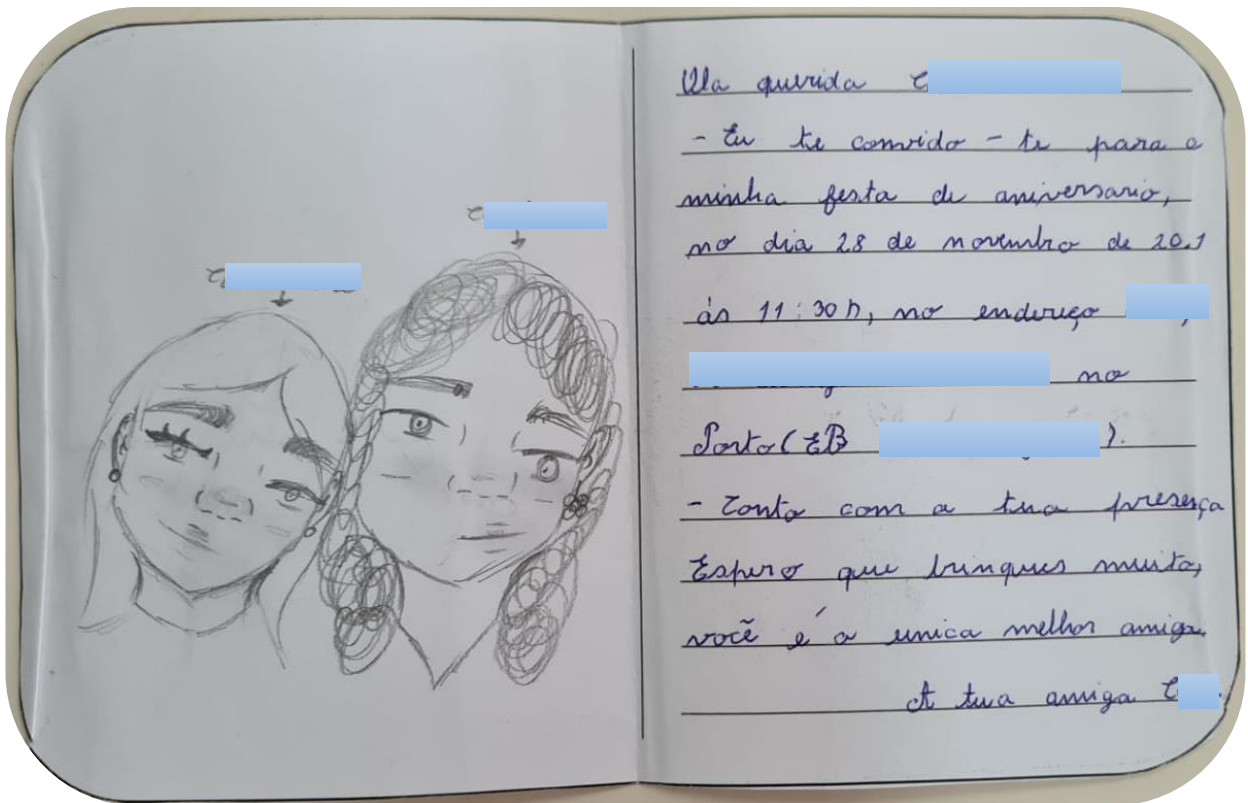 Ola querida
- Eu te convido - te para a
minha festa de aniversario,
no dia 28 de novembro de 20.1
ás 11:30h, no endereço
no
Porto (EB ).
- Conto com a tua presença
Espero que brinques muito,
você é a unica melhor amiga.
A tua amiga